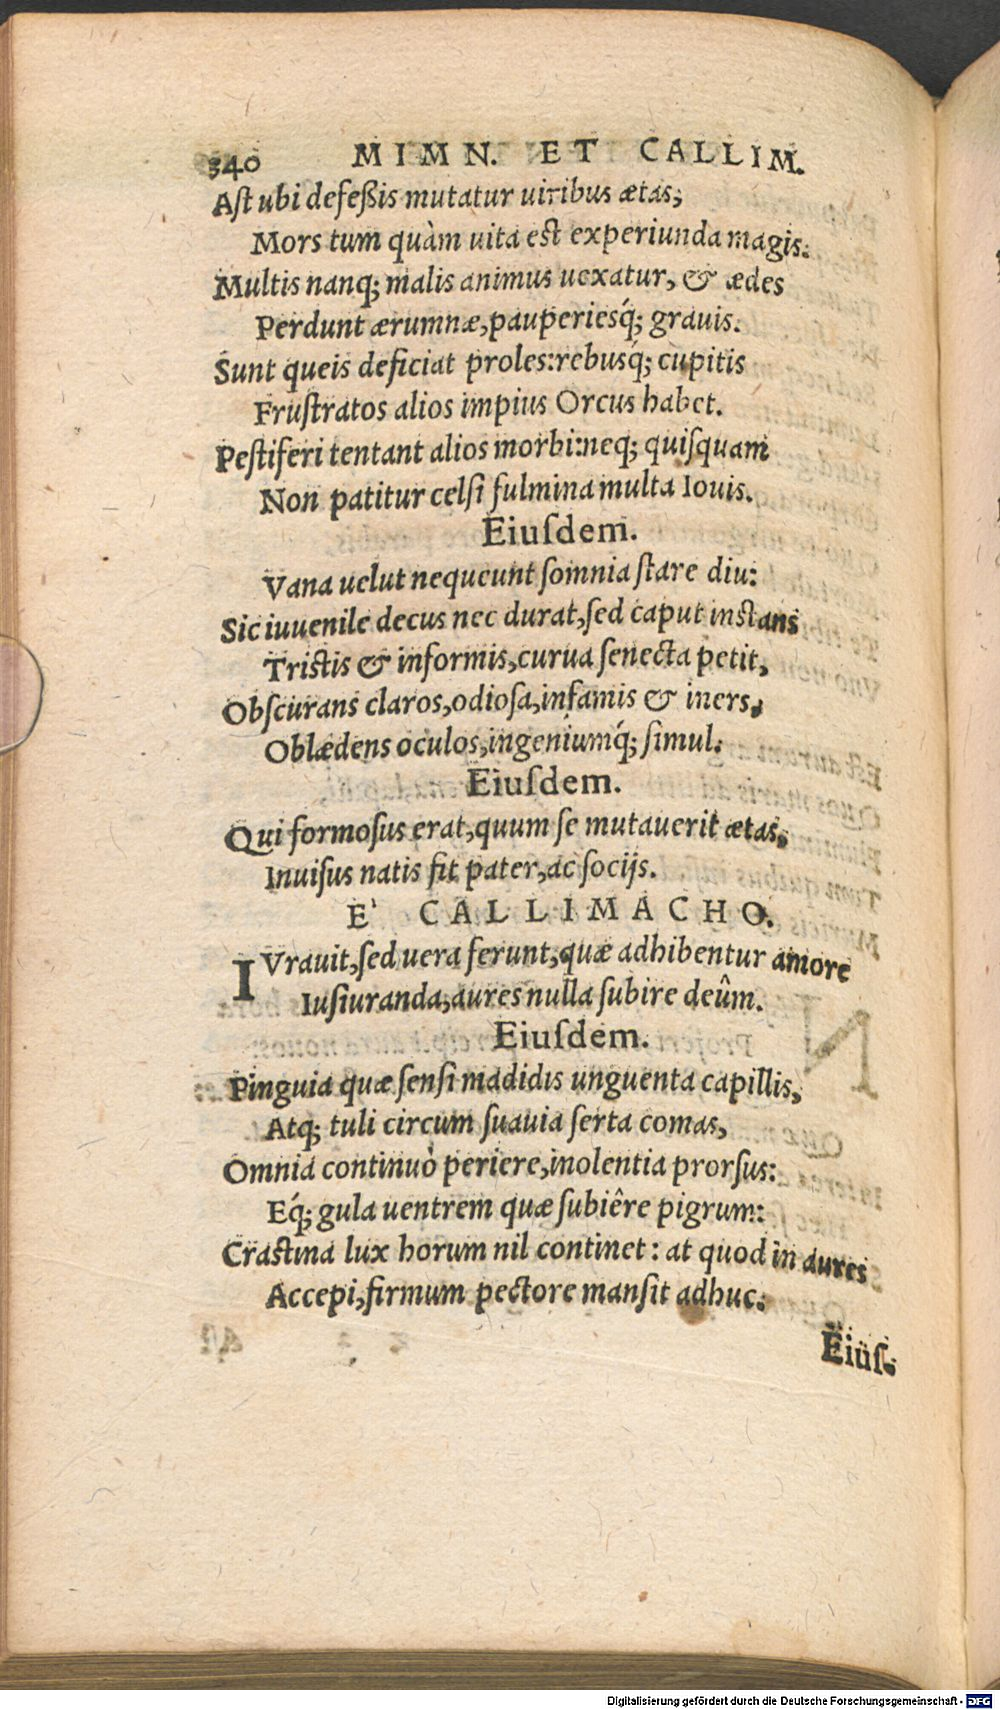 340 MIMN. ET CALLIM.
Aſt ubi defeßis mutatur uiribus ætas;
Mors tum quàm uita eſt experiunda magis.
Multis nanq; malis animus uexatur, & ædes
Perdunt ærumnæ, pauperiesq́; grauis.
Sunt queis deficiat proles: rebusq́; cupitis
Fruſtratos alios impius Orcus habet.
Peſtiferi tentant alios morbi: neq; quiſquam
Non patitur celſi fulmina multa Iouis.
Eiuſdem.
Vana uelut nequeunt ſomnia ſtare diu:
Sic iuuenile decus nec durat, ſed caput inſtans
Triſtis & informis, curua ſenecta petit,
Obſcurans claros, odioſa, infamis & iners,
Oblædens oculos, ingeniumq́; ſimul.
Eiuſdem.
Qui formoſus erat, quum ſe mutauerit ætas,
Inuiſus natis fit pater, ac ſocijs.
E' CALLIMACHO.
IVrauit, ſed uera ferunt, quæ adhibentur amore
Iuſiuranda, aures nulla ſubire deûm.
Eiuſdem.
Pinguia quæ ſenſi madidis unguenta capillis,
Atq; tuli circum ſuauia ſerta comas,
Omnia continuò periere, inolentia prorſus:
Eq́; gula uentrem quæ ſubiêre pigrum:
Craſtina lux horum nil continet: at quod in aures
Accepi, firmum pectore manſit adhuc.
Eiuſ-
Digitalisierung gefördert durch die Deutsche Forschungsgemeinschaft - DFG